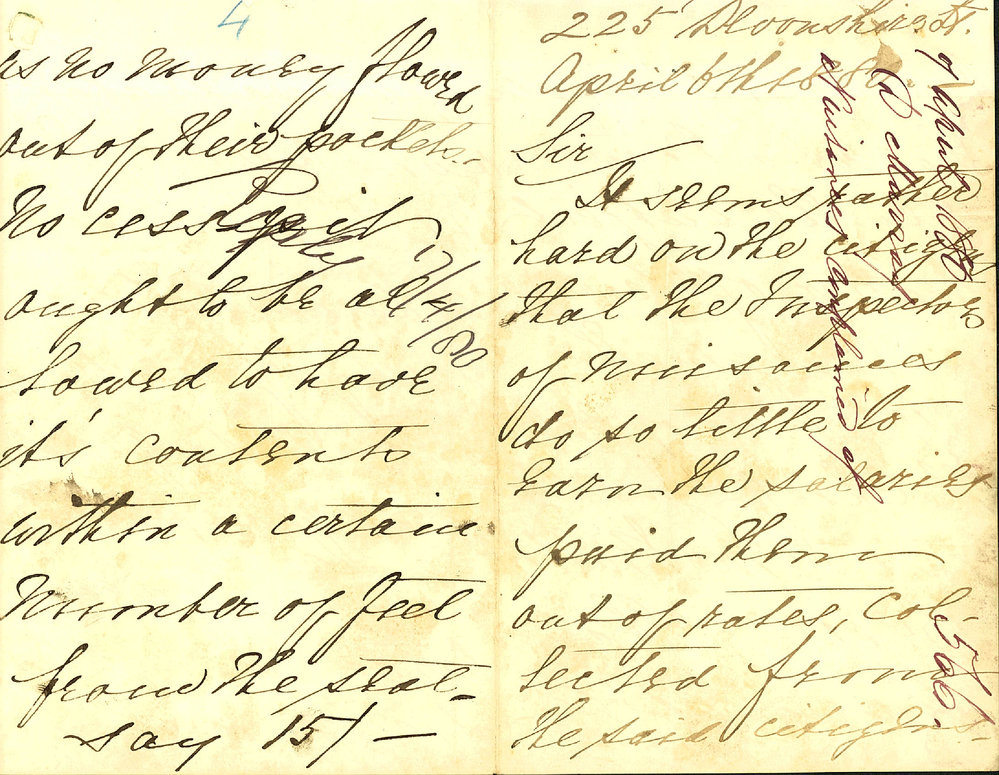 4
as no money flowed
out of their pockets.
No cess pit
ought to be al
lowed to have
it's contents
within a certain
number of feet
from the seat-
say 15/ —
Reply
17/4/80
225 Devonshire St.
April 6th 1880.
Sir
It seems rather
hard on the citizens
that the Inspectors
of nuisances
do so little to
earn the salaries
paid them
out of rates, col-
lected from
the said citizens-
9 April 1880
nuisances complained of
566.